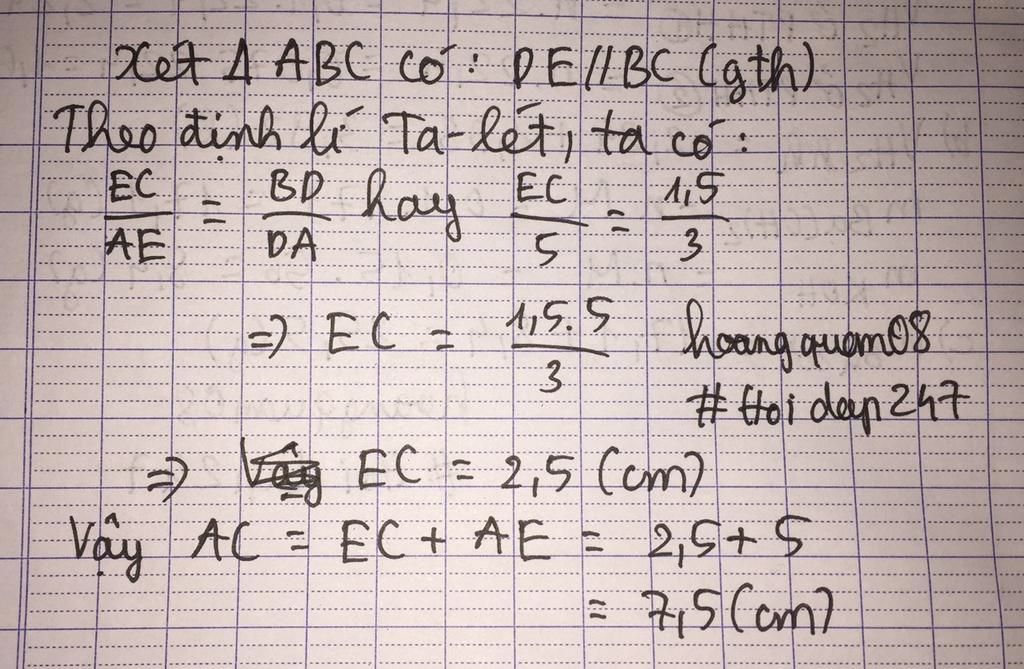 Xét Δ ABC có: DE//BC (gth)
Theo định lí Ta-lét, ta có:
EC/AE = BD/DA hay EC/5 = 1,5/3
=> EC = 1,5.5/3
hoangquam08
#Hoidap247
=> EC = 2,5 (cm)
Vậy AC = EC + AE = 2,5 + 5
= 7,5 (cm)